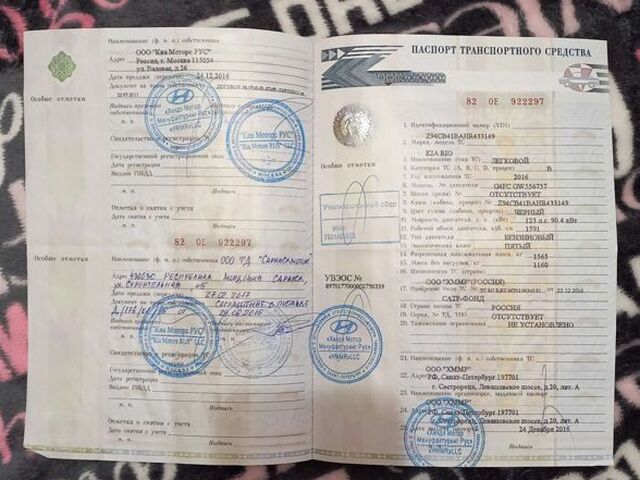 Наименование (ф. и. о.) собственника
ООО "Киа Моторс РУС"
Адрес Россия, г. Москва 115054
ул. Валовая, д.26
Дата продажи (передачи) 24.12.2016
Документ на
Особые отметки
Подпись прежнего
собственника
Свидетельство о регистрации
Государственный регистрационный знак
Дата регистрации
Выдано ГИБДД
М. П.
Подпись
Отметка о снятии с учета
Дата снятия с учета
М. П.
Подпись
82 ОЕ 922297
Особые отметки
Наименование (ф. и. о.) собственника ООО ТД "
Адрес 430030 РЕСПУБЛИКА САРАНСК,
ул. СТРОИТЕЛЬНАЯ,
Дата продажи (передачи) 27.02.2017
Документ на
Подпись прежнего
собственника
Свидетельство
Государственный
Дата регистрации
Выдано ГИБДД
М. П.
Подпись
Отметка о снятии с учета
Дата снятия с учета
М. П.
Подпись
Хендэ Мотор
Мануфактуринг Рус
"Киа Моторс РУС"
"Kia Motors RUS" LLC
ПАСПОРТ ТРАНСПОРТНОГО СРЕДСТВА
82 ОЕ 922297
1. Идентификационный номер (VIN)
Z94CB41BAHR433149
2. Марка, модель ТС
KIA RIO
3. Наименование (тип ТС) ЛЕГКОВОЙ
4. Категория ТС (А, В, С, D, прицеп) B
5. Год изготовления ТС 2016
6. Модель, № двигателя G4FC GW556757
7. Шасси (рама) № ОТСУТСТВУЕТ
8. Кузов (кабина, прицеп) № Z94CB41BAHR433149
9. Цвет кузова (кабины, прицепа) ЧЕРНЫЙ
10. Мощность двигателя, л. с. (кВт) 123 л.с. 90.4 кВт
11. Рабочий объем двигателя, куб. см 1591
12. Тип двигателя БЕНЗИНОВЫЙ
13. Экологический класс ПЯТЫЙ
14. Разрешенная максимальная масса, кг 1565
15. Масса без нагрузки, кг 1160
16. Изготовитель ТС (страна)
ООО "ХММР" (РОССИЯ)
17. Одобрение типа ТС №
САТР-ФОНД
18. Страна вывоза ТС РОССИЯ
19. Серия, № ТД, ТПО ОТСУТСТВУЕТ
20. Таможенные ограничения НЕ УСТАНОВЛЕНО
21. Наименование (ф. и. о.) собственника ТС
ООО "ХММР"
22. Адрес РФ, Санкт-Петербург 197701
г. Сестрорецк, Левашовское шоссе, д.20, лит. А
23. Наименование организации, выдавшей паспорт
ООО "ХММР"
24. Адрес РФ, Санкт-Петербург 197701
г. Сестрорецк, Левашовское шоссе, д.20, лит. А
25. Дата выдачи паспорта 24 Декабря 2016
М. П.
Подпись
Особые отметки
Утилизационный сбор
УВЭОС №
Хендэ Мотор
Мануфактуринг Рус
«HMMR» LLC